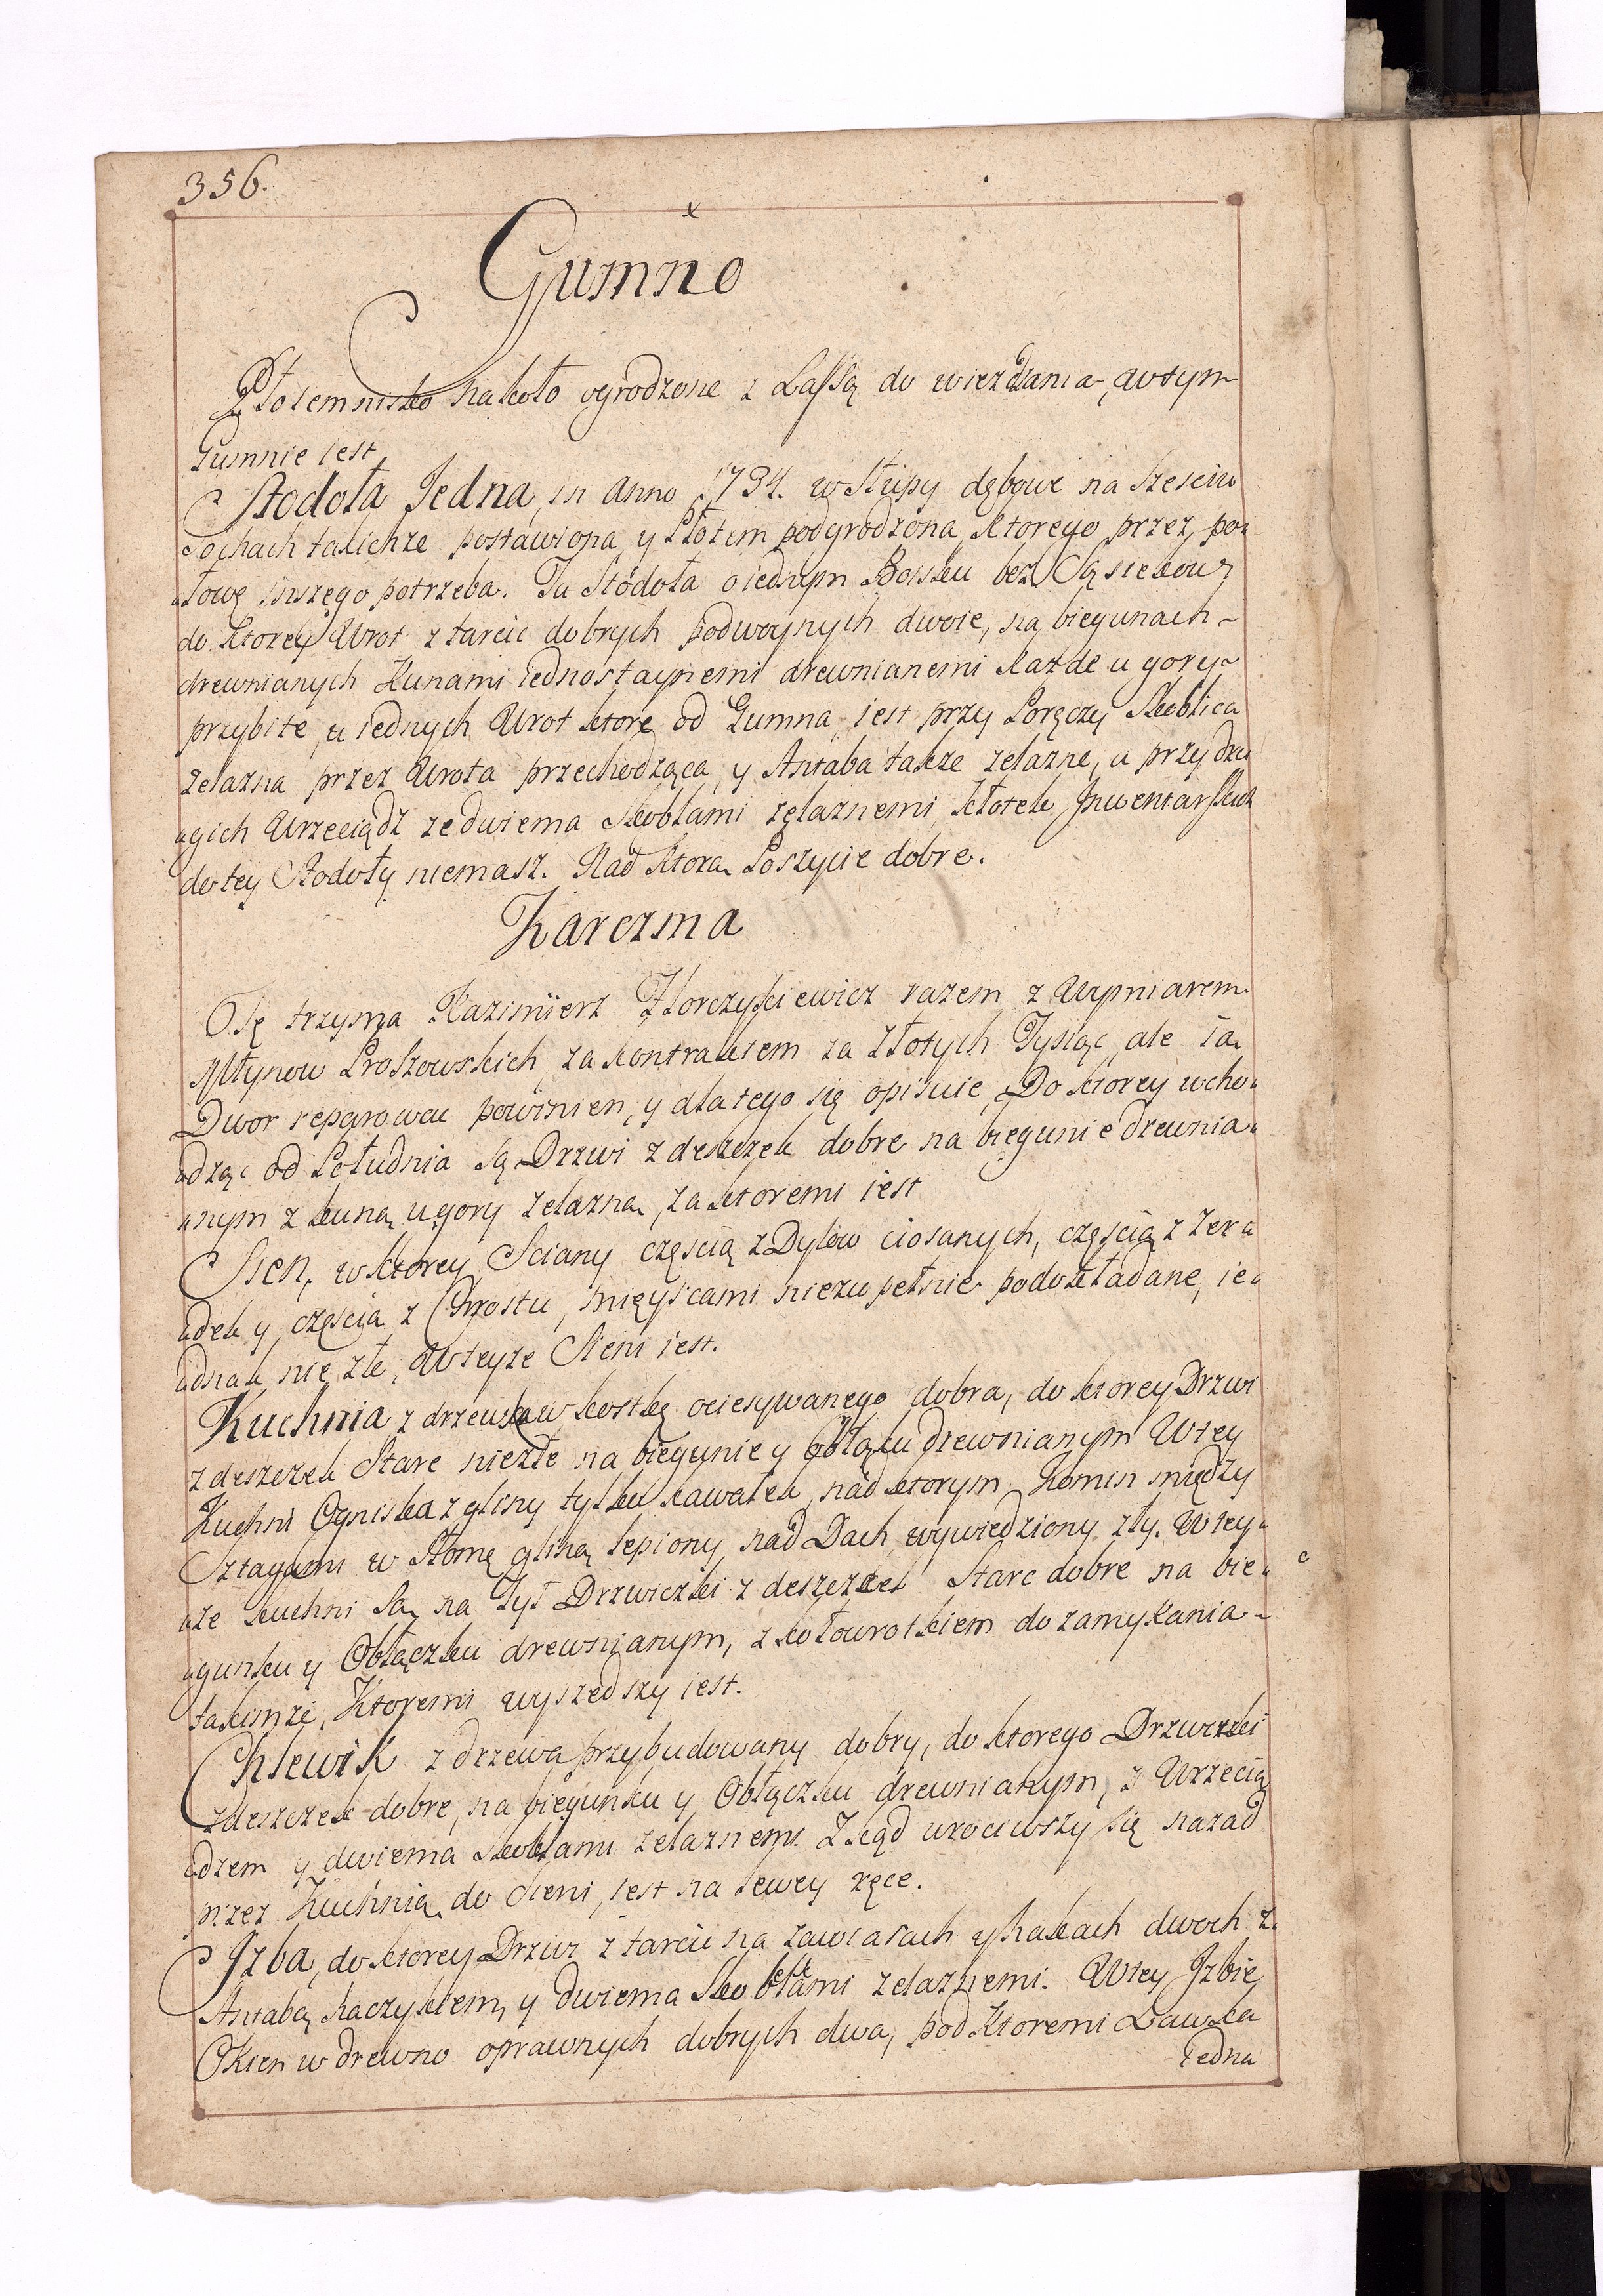 356.
Gumno
Płotem nisko nakoło ogrodzone z Lassą do wiezdzania, w tym
Gumnie iest
Stodoła Jedna in Anno 1734. w Słupy dębowe na Szesciu
Sochach takichze postawiona y Płotem podgrodzona, ktorego przez po„
„łowę inszego potrzeba. Ta Stodoła o iednym Boisku bez Sąsiekow,
do ktorey Wrot z tarcic dobrych podwoynych dwoie, na biegunach
drewnianych Kunami iednostaynemi drewnianemi Kazde u gory
przybite, u iednych Wrot ktore od Gumna, iest przy Poręczy Skoblica
zelazna przez Wrota przechodząca, y Antaba takze zelazne, a przy dru
„gich Wrzeciądz ze dwiema Skoblami zelaznemi, kłotek Jnwentarskich
do tey Stodoły niemasz. Nad ktorą Poszycie dobre.
Karczma
Tę trzyma Kazimierz Florczykiewicz razem z Wypniarem
Młynow Proszowskich, za kontraktem za Złotych Tysiąc, ale ią
Dwor reparować powinien, y dla tego się opisuie, Do ktorey wcho„
„dząc od Południa są Drzwi z deszczek dobre na biegunie drewnia„
„nym z kuną u gory zelazną, za ktoremi iest
Sien, w ktorey Sciany częscią z Dylow ciosanych, częscią z Zer„
„dek y częscią z Chrostu, mieyscami niezupełnie podokładane, ie„
„dnak nie złe, W teyze Sieni iest.
Kuchnia z drzewa w kostkę ociesywanego dobra, do ktorey Drzwi
z deszczek Stare niezłe na biegunie y Obłąku drewnianym W tey
Kuchni Ogniska z gliny tylko kawałek, nad ktorym Komin między
Sztagami w Słomę gliną lepiony nad Dach wywiedziony zły. W tey„
„ze kuchni są na tył Drzwiczki z deszczek Stare dobre na bie„
„gunku y Obłączku drewnianym, z kołowrotkiem do zamykania
takimze, Ktoremi wyszedszy iest.
Chlewik z drzewa przybudowany dobry, do ktorego Drzwiczki
z deszczek dobre, na biegunku y Obłączku drewnianym, z Wrzecią
„dzem y dwiema skoblami zelaznemi Zkąd wrociwszy się nazad
przez Kuchnią do Sieni, iest na lewey ręce.
Jzba, do ktorey Drzwi z tarcic na zawiasach y hakach dwoch z
Antabą haczykiem, y dwiema Skobelkami zelaznemi. W tey Jzbie
Okien w drewno oprawnych dobrych dwa, pod Ktoremi Ławka
iedna